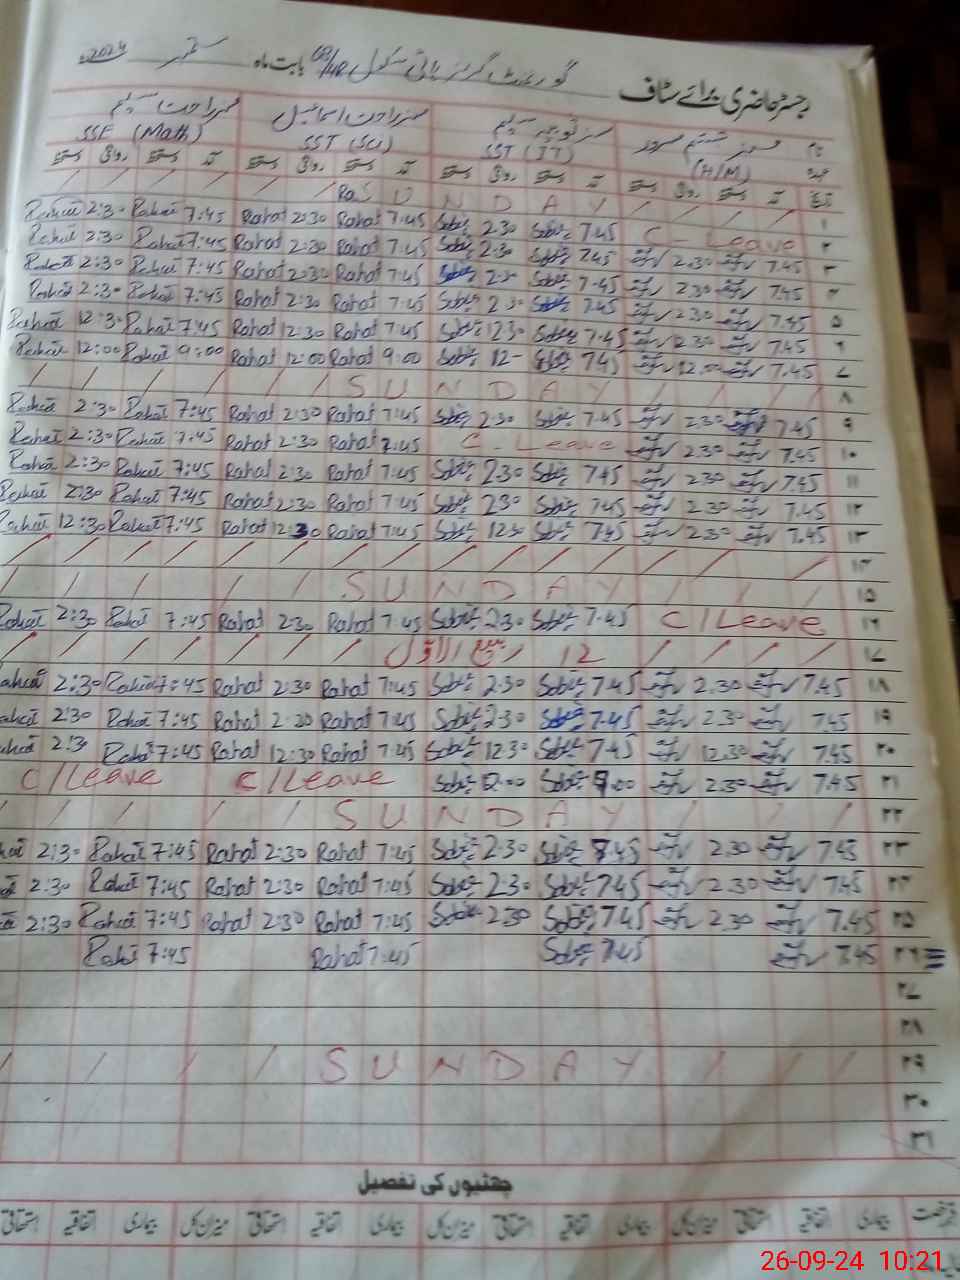 رجسٹر حاضری برائے سٹاف گورنمنٹ گرلز ہائی سکول 68/4R بابت ماہ ستمبر 2024ء
نام مسز سرور مسز ثوبیہ سلیم مسز راحت اسماعیل مسز راحت سلیم
عہدہ (H/M) SST (IT) SST (Sci) SSE (Math)
تاریخ آمد دستخط روانگی دستخط آمد دستخط روانگی دستخط آمد دستخط روانگی دستخط آمد دستخط روانگی دستخط
SUNDAY ۱
Rahat 2:30 Rahat 7:45 Rahat 2:30 Rahat 7:45 Sobia 2.30 Sobia 7.45 C-Leave ۲
Rahat 2:30 Rahat 7:45 Rahat 2:30 Rahat 7:45 Sobia 2.30 Sobia 7.45 2.30 7.45 ۳
Rahat 2:30 Rahat 7:45 Rahat 2:30 Rahat 7:45 Sobia 2.30 Sobia 7.45 2.30 7.45 ۴
Rahat 2:30 Rahat 7:45 Rahat 2:30 Rahat 7:45 Sobia 2.30 Sobia 7.45 2.30 7.45 ۵
Rahat 12:30 Rahat 7:45 Rahat 12:30 Rahat 7:45 Sobia 12.30 Sobia 7.45 12.30 7.45 ۶
Rahat 12:00 Rahat 9:00 Rahat 12:00 Rahat 9:00 Sobia 12- Sobia 7.45 12.00 7.45 ۷
SUNDAY ۸
Rahat 2:30 Rahat 7:45 Rahat 2:30 Rahat 7:45 Sobia 2.30 Sobia 7.45 2.30 7.45 ۹
Rahat 2:30 Rahat 7:45 Rahat 2:30 Rahat 7:45 C-Leave 2.30 7.45 ۱۰
Rahat 2:30 Rahat 7:45 Rahat 2:30 Rahat 7:45 Sobia 2.30 Sobia 7.45 2.30 7.45 ۱۱
Rahat 2:30 Rahat 7:45 Rahat 2:30 Rahat 7:45 Sobia 2.30 Sobia 7.45 2.30 7.45 ۱۲
Rahat 12:30 Rahat 7:45 Rahat 12:30 Rahat 7:45 Sobia 12.30 Sobia 7.45 2.30 7.45 ۱۳
۱۴
SUNDAY ۱۵
Rahat 2:30 Rahat 7:45 Rahat 2:30 Rahat 7:45 Sobia 2.30 Sobia 7.45 C/Leave ۱۶
12 ربیع الاوّل ۱۷
Rahat 2:30 Rahat 7:45 Rahat 2:30 Rahat 7:45 Sobia 2.30 Sobia 7.45 2.30 7.45 ۱۸
Rahat 2:30 Rahat 7:45 Rahat 2:30 Rahat 7:45 Sobia 2.30 Sobia 7.45 2.30 7.45 ۱۹
Rahat 2:30 Rahat 7:45 Rahat 12:30 Rahat 7:45 Sobia 12.30 Sobia 7.45 12.30 7.45 ۲۰
C/Leave C/Leave Sobia 12.00 Sobia 9.00 2.30 7.45 ۲۱
SUNDAY ۲۲
Rahat 2:30 Rahat 7:45 Rahat 2:30 Rahat 7:45 Sobia 2.30 Sobia 7.45 2.30 7.45 ۲۳
2:30 Rahat 7:45 Rahat 2:30 Rahat 7:45 Sobia 2.30 Sobia 7.45 2.30 7.45 ۲۴
2:30 Rahat 7:45 Rahat 2:30 Rahat 7:45 Sobia 2.30 Sobia 7.45 2.30 7.45 ۲۵
Rahat 7:45 Rahat 7:45 Sobia 7.45 7.45 ۲۶
۲۷
۲۸
SUNDAY ۲۹
۳۰
۳۱
چھٹیوں کی تفصیل
بیماری اتفاقیہ استحقاقی میزان کل بیماری اتفاقیہ استحقاقی میزان کل بیماری اتفاقیہ استحقاقی میزان کل بیماری اتفاقیہ استحقاقی
26-09-24 10:21